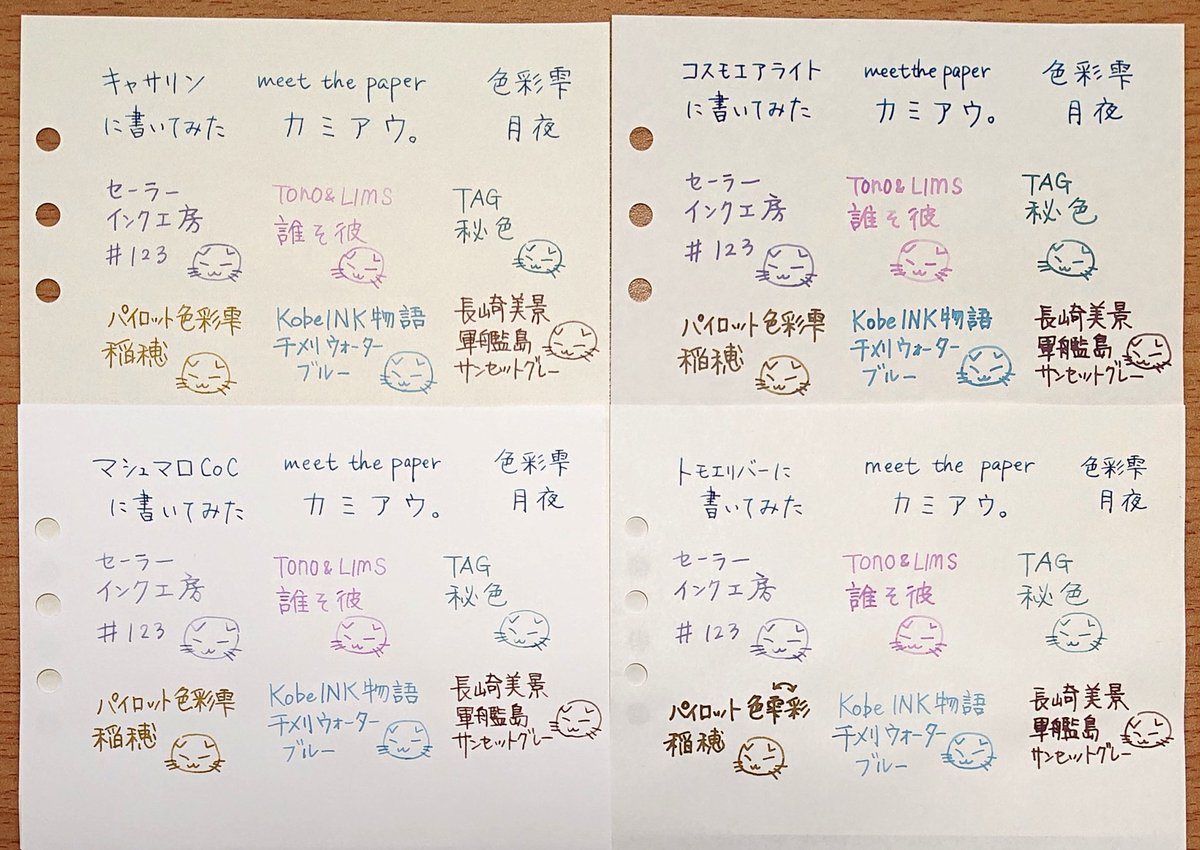 キャサリン
に書いてみた
meet the paper
カミアウ。
色彩雫
月夜
セーラー
インク工房
#123
Tono&LIMS
誰そ彼
TAG
秘色
パイロット色彩雫
稲穂
Kobe INK物語
チメリウォーター
ブルー
長崎美景
軍艦島
サンセットグレー
コスモエアライト
に書いてみた
meet the paper
カミアウ。
色彩雫
月夜
セーラー
インク工房
#123
Tono&LIMS
誰そ彼
TAG
秘色
パイロット色彩雫
稲穂
Kobe INK物語
チメリウォーター
ブルー
長崎美景
軍艦島
サンセットグレー
マシュマロCoC
に書いてみた
meet the paper
カミアウ。
色彩雫
月夜
セーラー
インク工房
#123
Tono&LIMS
誰そ彼
TAG
秘色
パイロット色彩雫
稲穂
Kobe INK物語
チメリウォーター
ブルー
長崎美景
軍艦島
サンセットグレー
トモエリバーに
書いてみた
meet the paper
カミアウ。
色彩雫
月夜
セーラー
インク工房
#123
Tono&LIMS
誰そ彼
TAG
秘色
パイロット色雫彩
稲穂
Kobe INK物語
チメリウォーター
ブルー
長崎美景
軍艦島
サンセットグレー